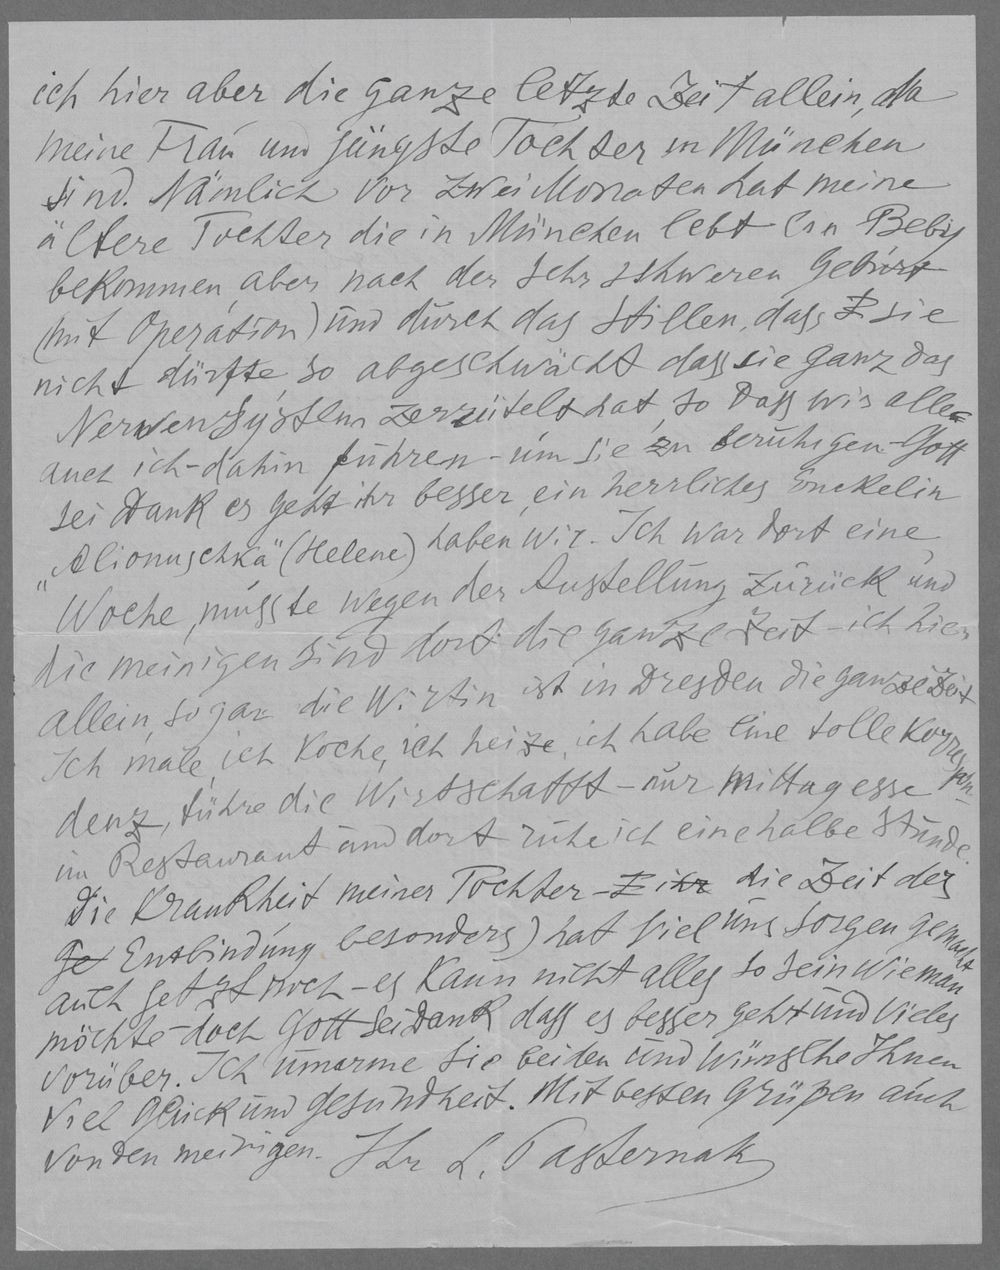 ich hier aber die ganze letzte Zeit allein, da
meine Frau und jüngste Tochter in München
sind. Nämlich vor zwei Monaten hat meine
ältere Tochter die in München lebt ein Beby
bekommen, aber nach der sehr schweren Geburt
(mit Operation) und durch das Stillen, dass sie
nicht dürfte, so abgeschwächt, dass sie ganz das
Nervensystem zerrütelt hat, so dass wir alle
auch ich - dahin führen - um sie zu beruhigen - Gott
sei Dank es geht ihr besser, ein herrliches Enckelin
„Alionuschka" (Helene) haben wir. Ich war dort eine
Woche, musste wegen der Austellung zurück und
die meinigen sind dort die ganze Zeit - ich hier
allein, sogar die Wirtin ist in Dresden die ganze Zeit
Ich male, ich koche, ich heize, ich habe eine tolle Korrespon-
denz, führe die Wirtschafft - nur Mittag esse
im Restaurant und dort ruhe ich eine halbe Stunde.
Die Krankheit meiner Tochter - die Zeit der
Entbindung besonders) hat viel uns Sorgen gemacht
auch jetzt noch - es kann nicht alles so sein wie man
möchte - doch Gott sei Dank dass es besser geht und vieles
vorüber. Ich umarme Sie beiden und wünsche Ihnen
viel Glück und Gesundheit. Mit besten Grüßen auch
von den meinigen. Ihr L. Pasternak